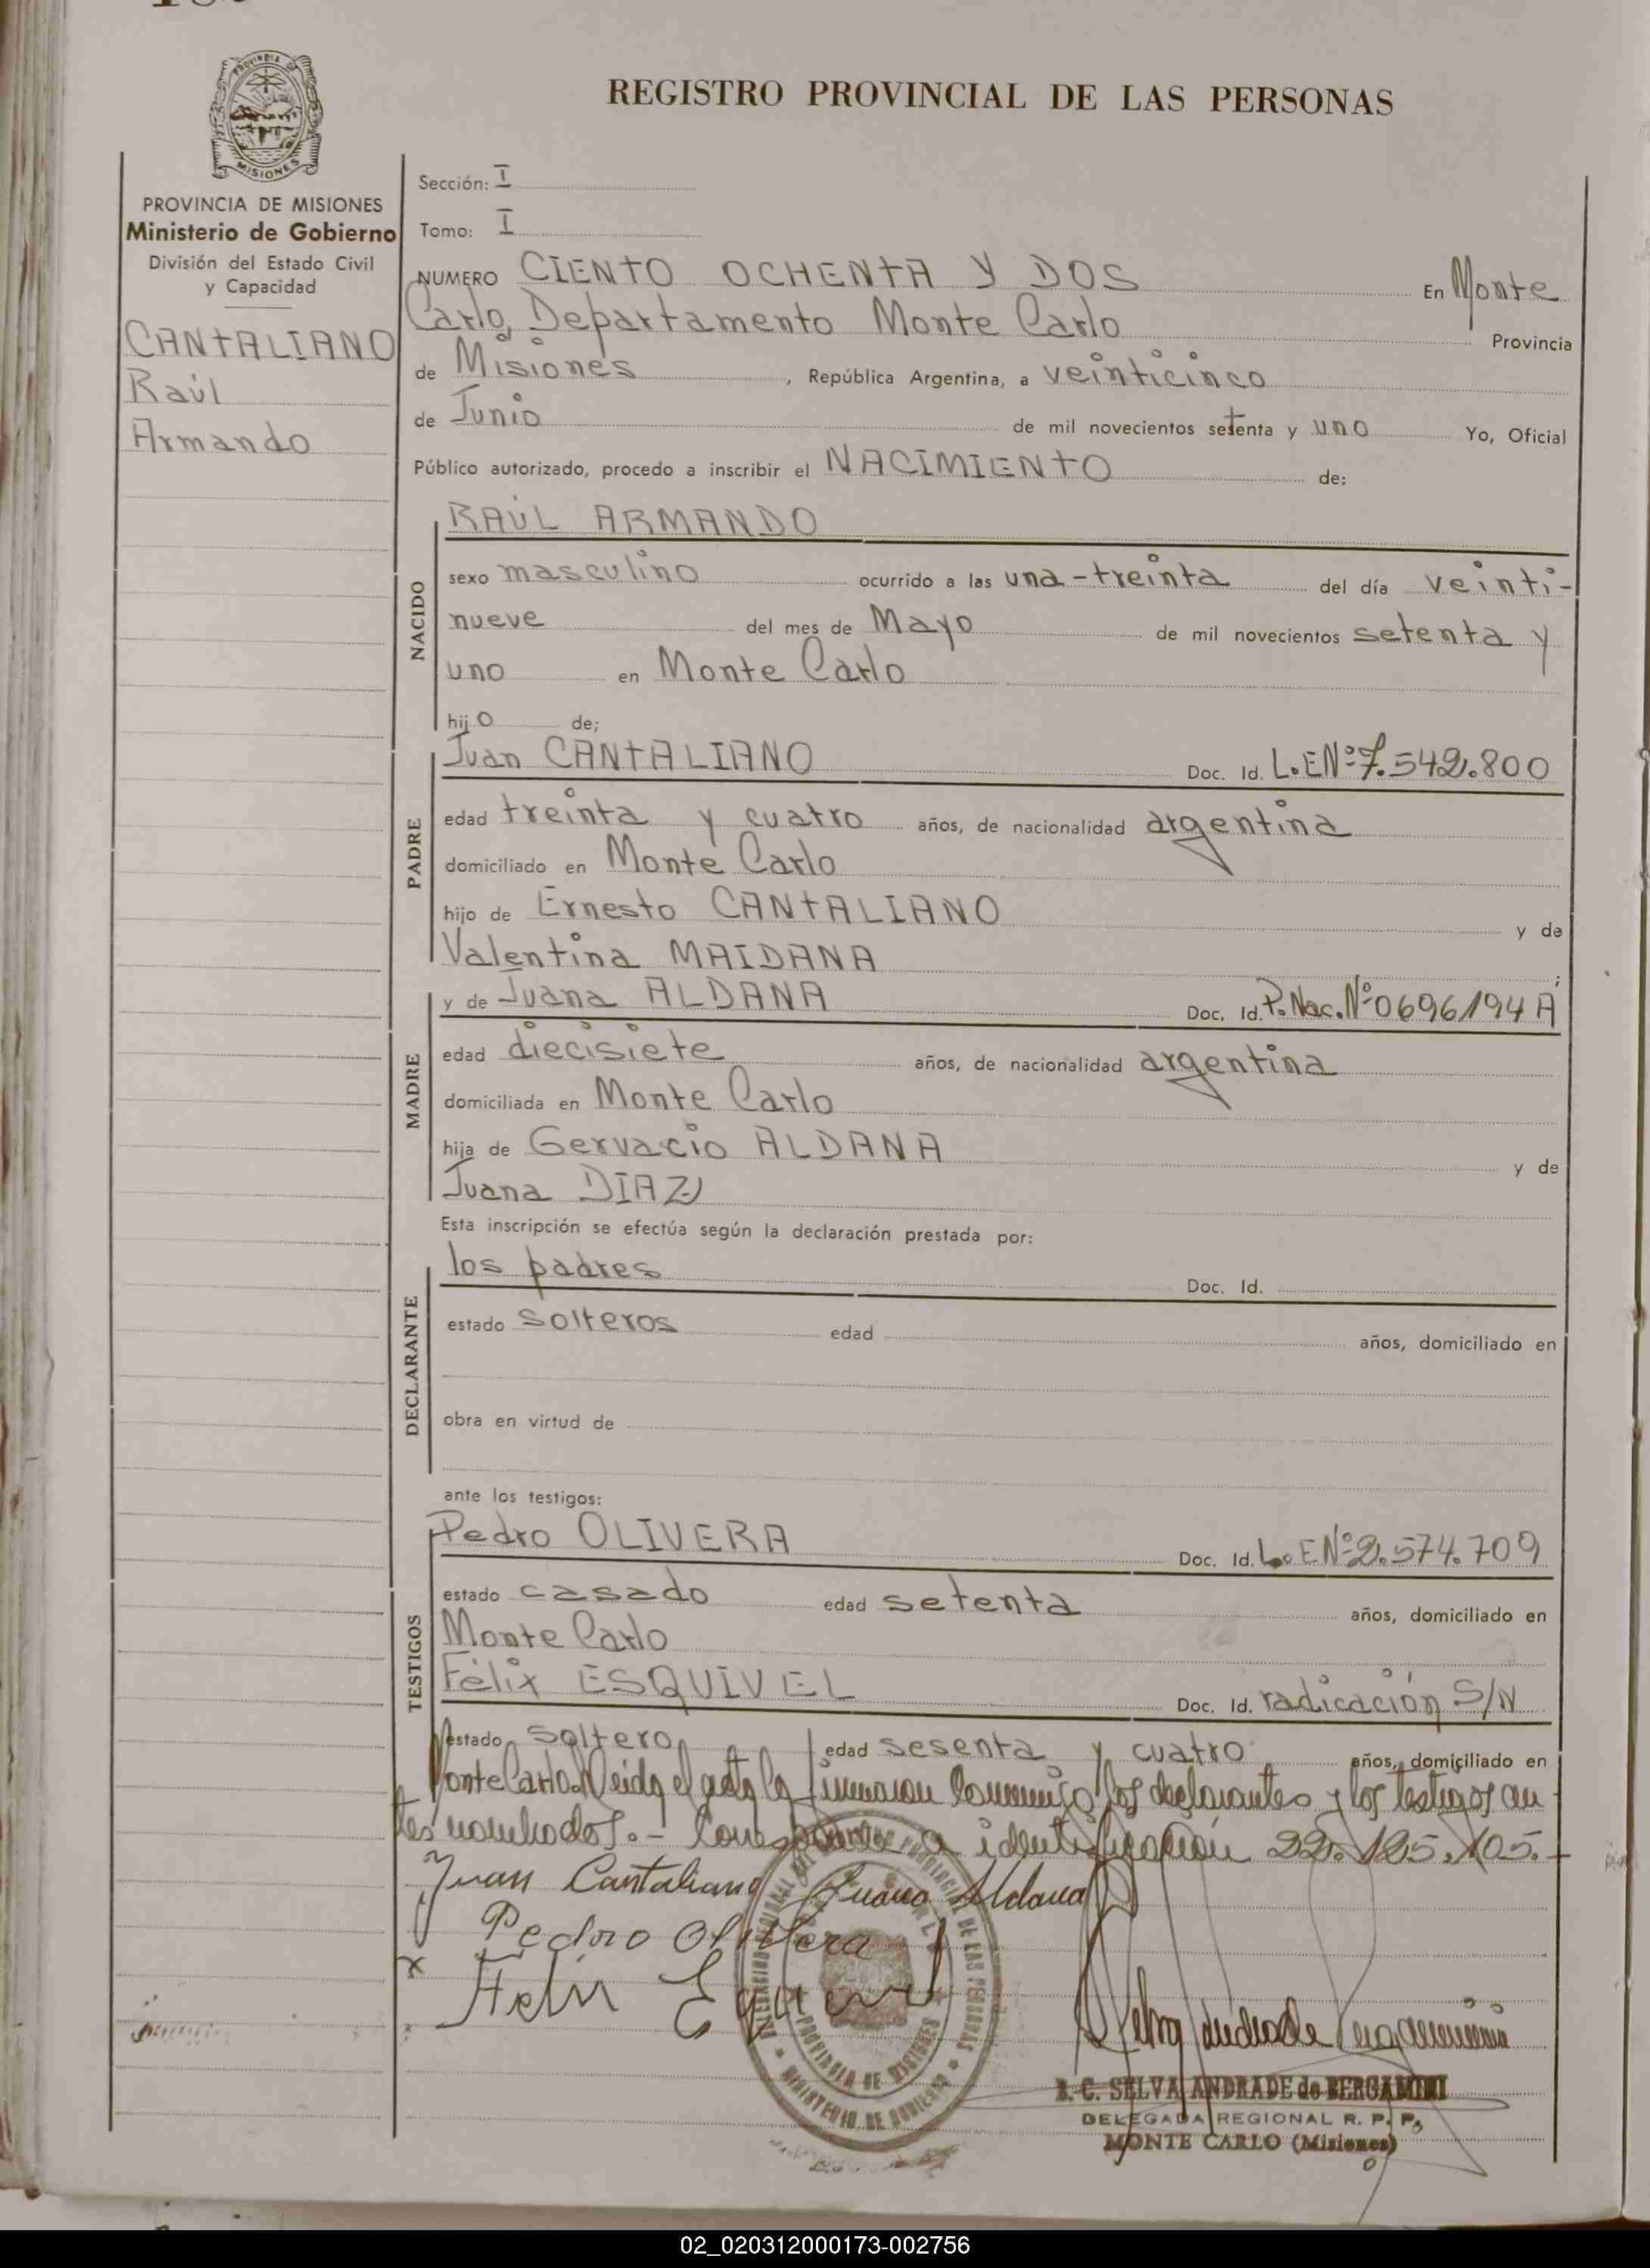 REGISTRO PROVINCIAL DE LAS PERSONAS
PROVINCIA DE
MISIONES
PROVINCIA DE MISIONES
Ministerio de Gobierno
División del Estado Civil
y Capacidad
CANTALIANO
Raúl
Armando
Sección: I
Tomo: I
NUMERO CIENTO OCHENTA Y DOS En Monte
Carlo, Departamento Monte Carlo Provincia
de Misiones, República Argentina, a veinticinco
de Junio de mil novecientos setenta y uno Yo, Oficial
Público autorizado, procedo a inscribir el NACIMIENTO de:
NACIDO
RAÚL ARMANDO
sexo masculino ocurrido a las una-treinta del día veinti-
nueve del mes de Mayo de mil novecientos setenta y
uno en Monte Carlo
hijo de;
PADRE
Juan CANTALIANO Doc. Id. L.E Nº 7.542.800
edad treinta y cuatro años, de nacionalidad argentina
domiciliado en Monte Carlo
hijo de Ernesto CANTALIANO y de
Valentina MAIDANA;
MADRE
y de Juana ALDANA Doc. Id. P. Nac. Nº 0696194 A
edad diecisiete años, de nacionalidad argentina
domiciliada en Monte Carlo
hija de Gervacio ALDANA y de
Juana DIAZ
Esta inscripción se efectúa según la declaración prestada por:
DECLARANTE
los padres Doc. Id.
estado solteros edad años, domiciliado en
obra en virtud de
ante los testigos:
TESTIGOS
Pedro OLIVERA Doc. Id. L.E Nº 2.574.709
estado casado edad setenta años, domiciliado en
Monte Carlo
Félix ESQUIVEL Doc. Id. radicación S/N
estado soltero edad sesenta y cuatro años, domiciliado en
Monte Carlo. Leida el acta la firmaron conmigo los declarantes y los testigos an
tes nombrados.- Corresponde a identificación 22.125.105.-
Juan Cantaliano Juana Aldana
Pedro Olivera
x Felix Esquivel
DE LAS PERSONAS
PROVINCIA DE MISIONES
MINISTERIO DE GOBIERNO
Selva Andrade Bergamini
B. C. SELVA ANDRADE de BERGAMINI
DELEGADA REGIONAL R. P. P.
MONTE CARLO (Misiones)
02_020312000173-002756